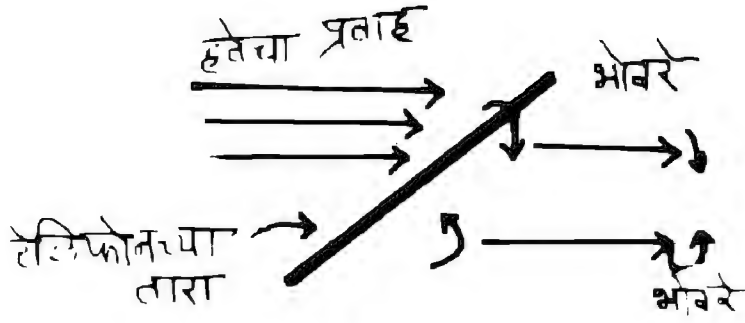 हवेचा प्रवाह
भोवरे
टेलिफोनच्या
तारा
भोवरे